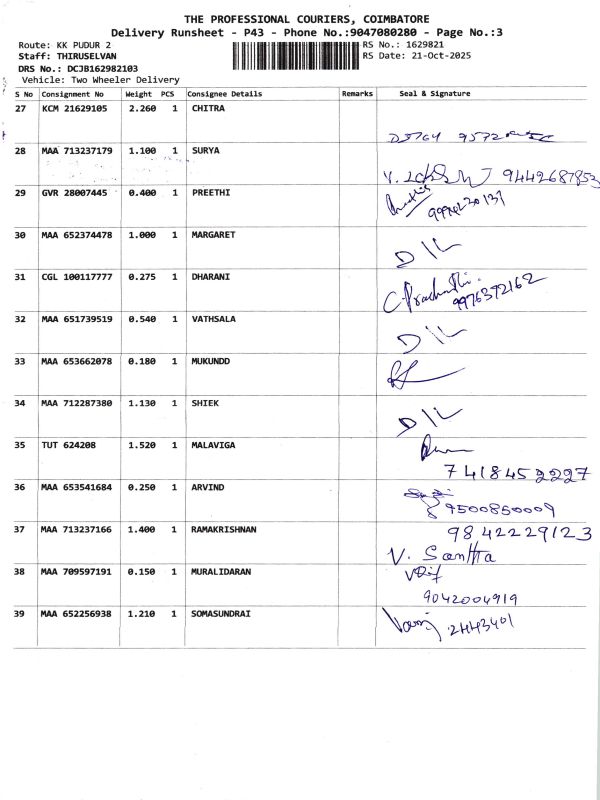 THE PROFESSIONAL COURIERS, COIMBATORE
Delivery Runsheet - P43 - Phone No.:9047080280 - Page No.:3
Route: KK PUDUR 2 RS No.: 1629821
Staff: THIRUSELVAN RS Date: 21-Oct-2025
DRS No.: DCJB162982103
Vehicle: Two Wheeler Delivery
S No Consignment No Weight PCS Consignee Details Remarks Seal & Signature
27 KCM 21629105 2.260 1 CHITRA
28 MAA 713237179 1.100 1 SURYA
9442687853
29 GVR 28007445 0.400 1 PREETHI
30 MAA 652374478 1.000 1 MARGARET
D/L
31 CGL 100117777 0.275 1 DHARANI
9976372162
32 MAA 651739519 0.540 1 VATHSALA
D/L
33 MAA 653662078 0.180 1 MUKUNDD
34 MAA 712287380 1.130 1 SHIEK
D/L
35 TUT 624208 1.520 1 MALAVIGA
7418452227
36 MAA 653541684 0.250 1 ARVIND
9500850009
37 MAA 713237166 1.400 1 RAMAKRISHNAN
9842229123
V. Santha
38 MAA 709597191 0.150 1 MURALIDARAN
9042004919
39 MAA 652256938 1.210 1 SOMASUNDRAI
2443401